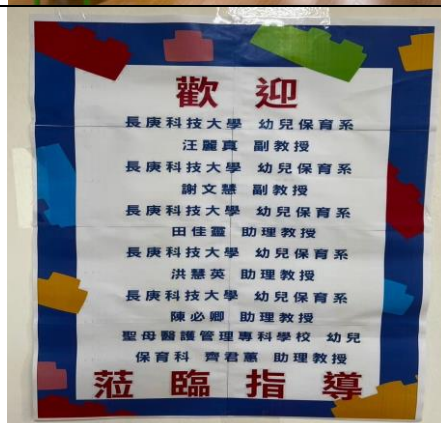 歡迎
長庚科技大學 幼兒保育系
汪麗真 副教授
長庚科技大學 幼兒保育系
謝文慧 副教授
長庚科技大學 幼兒保育系
田佳靈 助理教授
長庚科技大學 幼兒保育系
洪慧英 助理教授
長庚科技大學 幼兒保育系
陳必卿 助理教授
聖母醫護管理專科學校 幼兒
保育科 齊君蕙 助理教授
蒞臨指導